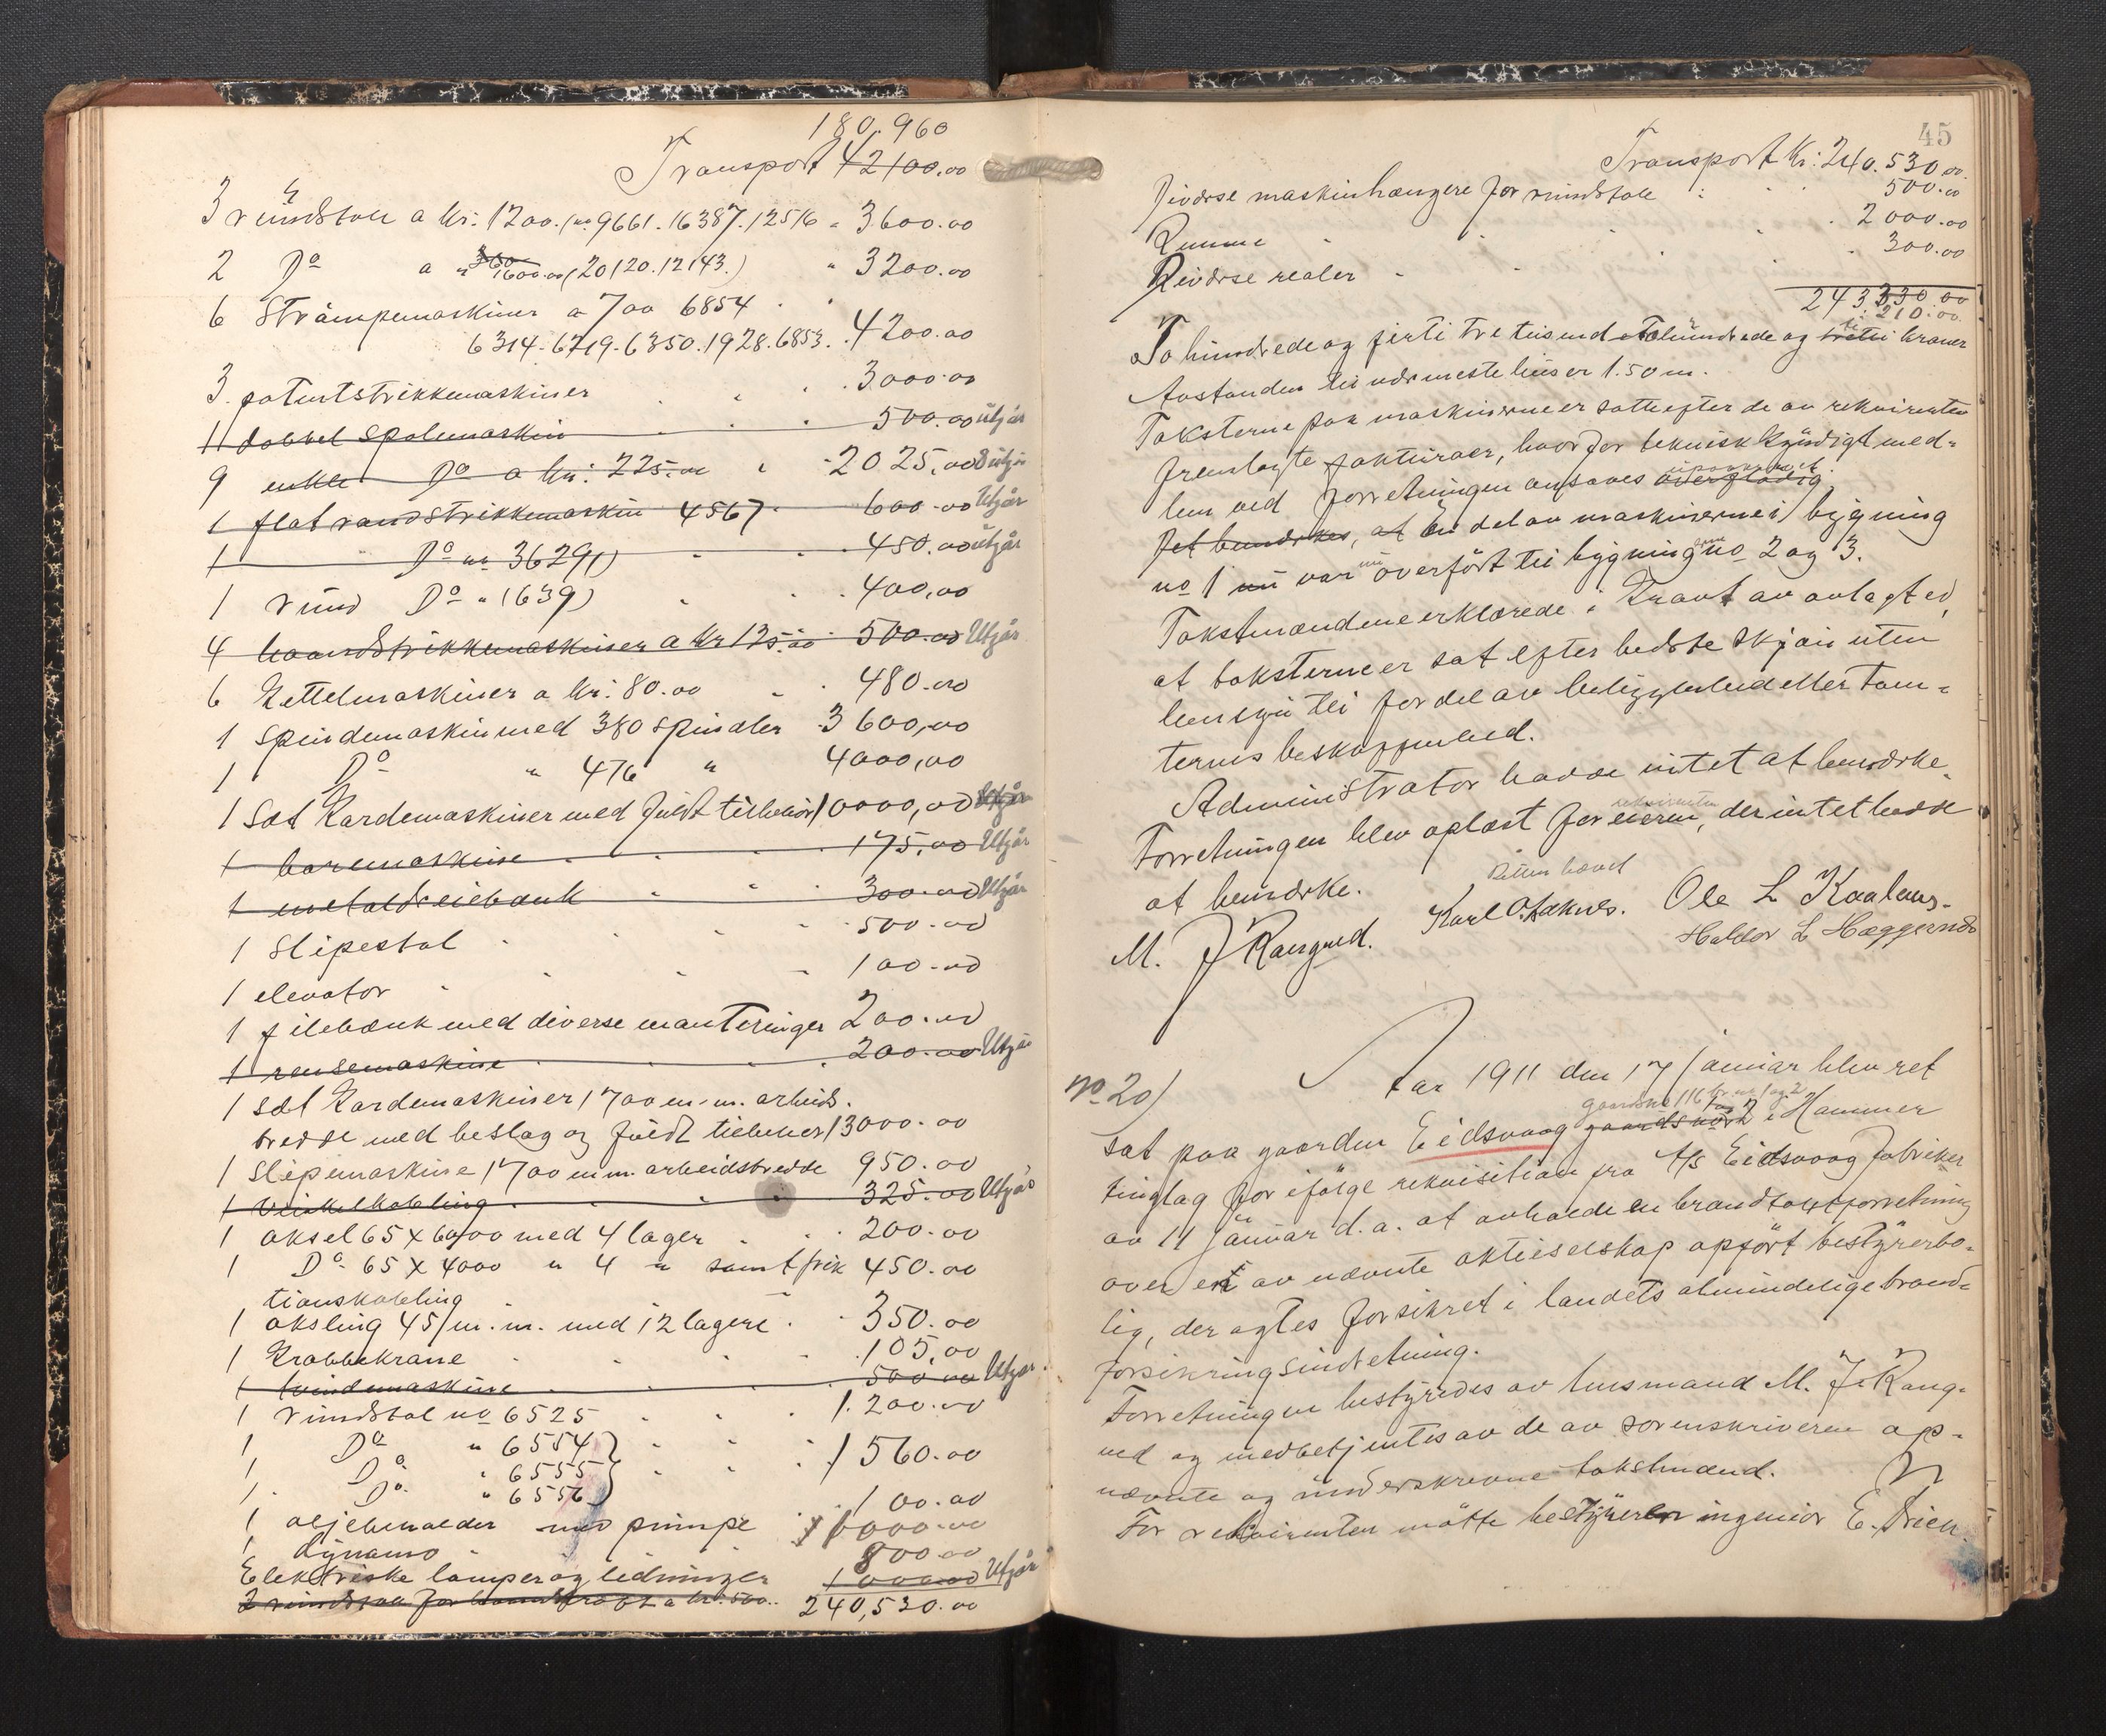 180.960
Transport 42100.00
3 rundstole a Kr: 1200. (no 9661. 16387. 12516 " 3600.00
2 Do a " 350 1600.00 (20120. 12143.) " 3200.00
6 Strømpemaskiner a 700 6854
6314-6719-6350.1928.6853. 4200.00
3 patentstrikkemaskiner 3000.00
1 dobbel spolemaskin 500.00 utgår
9 enkle Do a kr: 225.00 2025.00 utgår
1 flat randstrikkemaskin 4567 600.00 Utgår
1 Do no 36291) 450.00 utgår
1 rund Do " (639) 400,00
4 haandstrikkemaskiner a kr 125.00 500.00 Utgår
6 Kettelmaskiner a kr: 80.00 480.00
1 Spindemaskin med 380 spindler 3600,00
1 Do " 476 " 4000,00
1 Sæt Kardemaskiner med fuldt tilbehør 10000,00 Utgår
1 boremaskine 175,00 Utgår
1 metaldreiebænk 300.00 Utgår
1 Slipestol 500.00
1 elevator 100.00
1 filebænk med diverse monteringer 200.00
1 rensemaskine 200.00 Utgår
1 sæt Kardemaskiner 1700 m.m. arbeids-
bredde med beslag og fuldt tilbehør 13000.00
1 Slipemaskine 1700 m.m. arbeidsbredde 950.00
1 vinkelkobling 325.00 Utgår
1 aksel 65 x 6000 med 4 lager 200.00
1 Do 65 x 4000 " 4 " samt frik 450.00
tionskobling
1 aksling 45 m.m. med 12 lagere 350.00
1 Krabbekrane 105,00
1 vindemaskine 500.00 Utgår
1 rundstol no 6525 1.200.00
1 Do " 6554
1 Do " 6555 1560.00
1 Do " 6556
1 oljebeholder med pumpe 100.00
1 dynamo 6000.00
Elektriske lamper og ledninger 800.00
2 rundstole for haandkraft a kr. 500.. 1000.00 Utgår
240,530.00
45
Transport Kr: 240.530.00
Diverse maskinhængere for rundstole 500.00
Remme 2000.00
Diverse realer 300.00
243.330.00
210.00
To hundrede og firti tre tusend tohundrede og treti ti kroner
Avstanden til nærmeste hus er 1.50 m.
Taksterne paa maskinerne er satte efter de av rekvirenten
fremlagte fakturaer, hvorfor teknisk kyndigt med-
lem ved forretningen ansaaes overflødig upaakrævet.
Det bemærkes, at En del av maskinerne i bygning
no 1 nu var nu overført til bygningerne no 2 og 3.
Takstmændene erklærede i kraft av avlagt ed,
at taksterne er sat efter bedste skjøn uten
hensyn til fordel av beliggenhed eller tom-
ternes beskaffenhed.
Administrator havde intet at bemærke.
Forretningen blev oplæst for eieren rekvirenten, der intet havde
at bemærke.
Retten hævet
M. J Rangved. Karl O. Aaknes. Ole L Kaalaas.
Haldor L Hæggernæs
No 20)
Aar 1911 den 17 januar blev ret
gaardsno 116 br. no 1 og 2
sat paa gaarden Eidsvaag gaardsno 2 i Hammer
tinglag for ifølge rekvisition fra A/S Eidsvaag Fabriker
av 11 januar d.a. at avholde en brandtakstforretning
over en av nævnte aktieselskap opført bestyrerbo-
lig, der agtes forsikret i landets almindelige brand-
forsikringsindretning.
Forretningen bestyredes av lensmand M. J. Rang-
ved og medbetjentes av de av sorenskriveren op-
nævnte og underskrevne takstmænd.
For rekvirenten møtte bestyreren ingeniør E. Trier